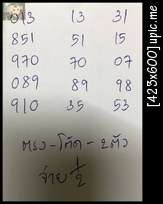 013 13 31
851 51 15
970 70 07
089 89 98
910 35 53
ตรง-โต๊ด-2ตัว
จ่าย 1/2
[423x600]upic.me